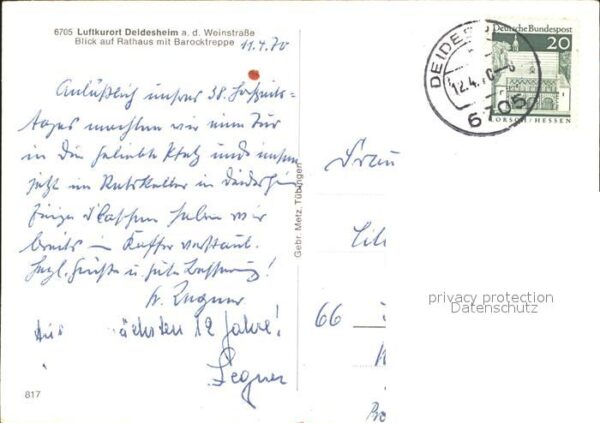 6705 Luftkurort Deidesheim a. d. Weinstraße
Blick auf Rathaus mit Barocktreppe
11.4.70
Anläßlich unseres 38. Hochzeits-
tages machten wir eine Tour
in die geliebte Pfalz und
jetzt im Ratskeller in Deidesheim
Einige Flaschen haben wir
bereits im Koffer verstaut.
Herzl. Grüße u. gute Besserung!
nächsten 12 Jahre!
Gebr. Metz, Tübingen
DEIDES
12.4.70-
6705
Deutsche Bundespost
20
LORSCH/HESSEN
Frau
66
privacy protection
Datenschutz
817